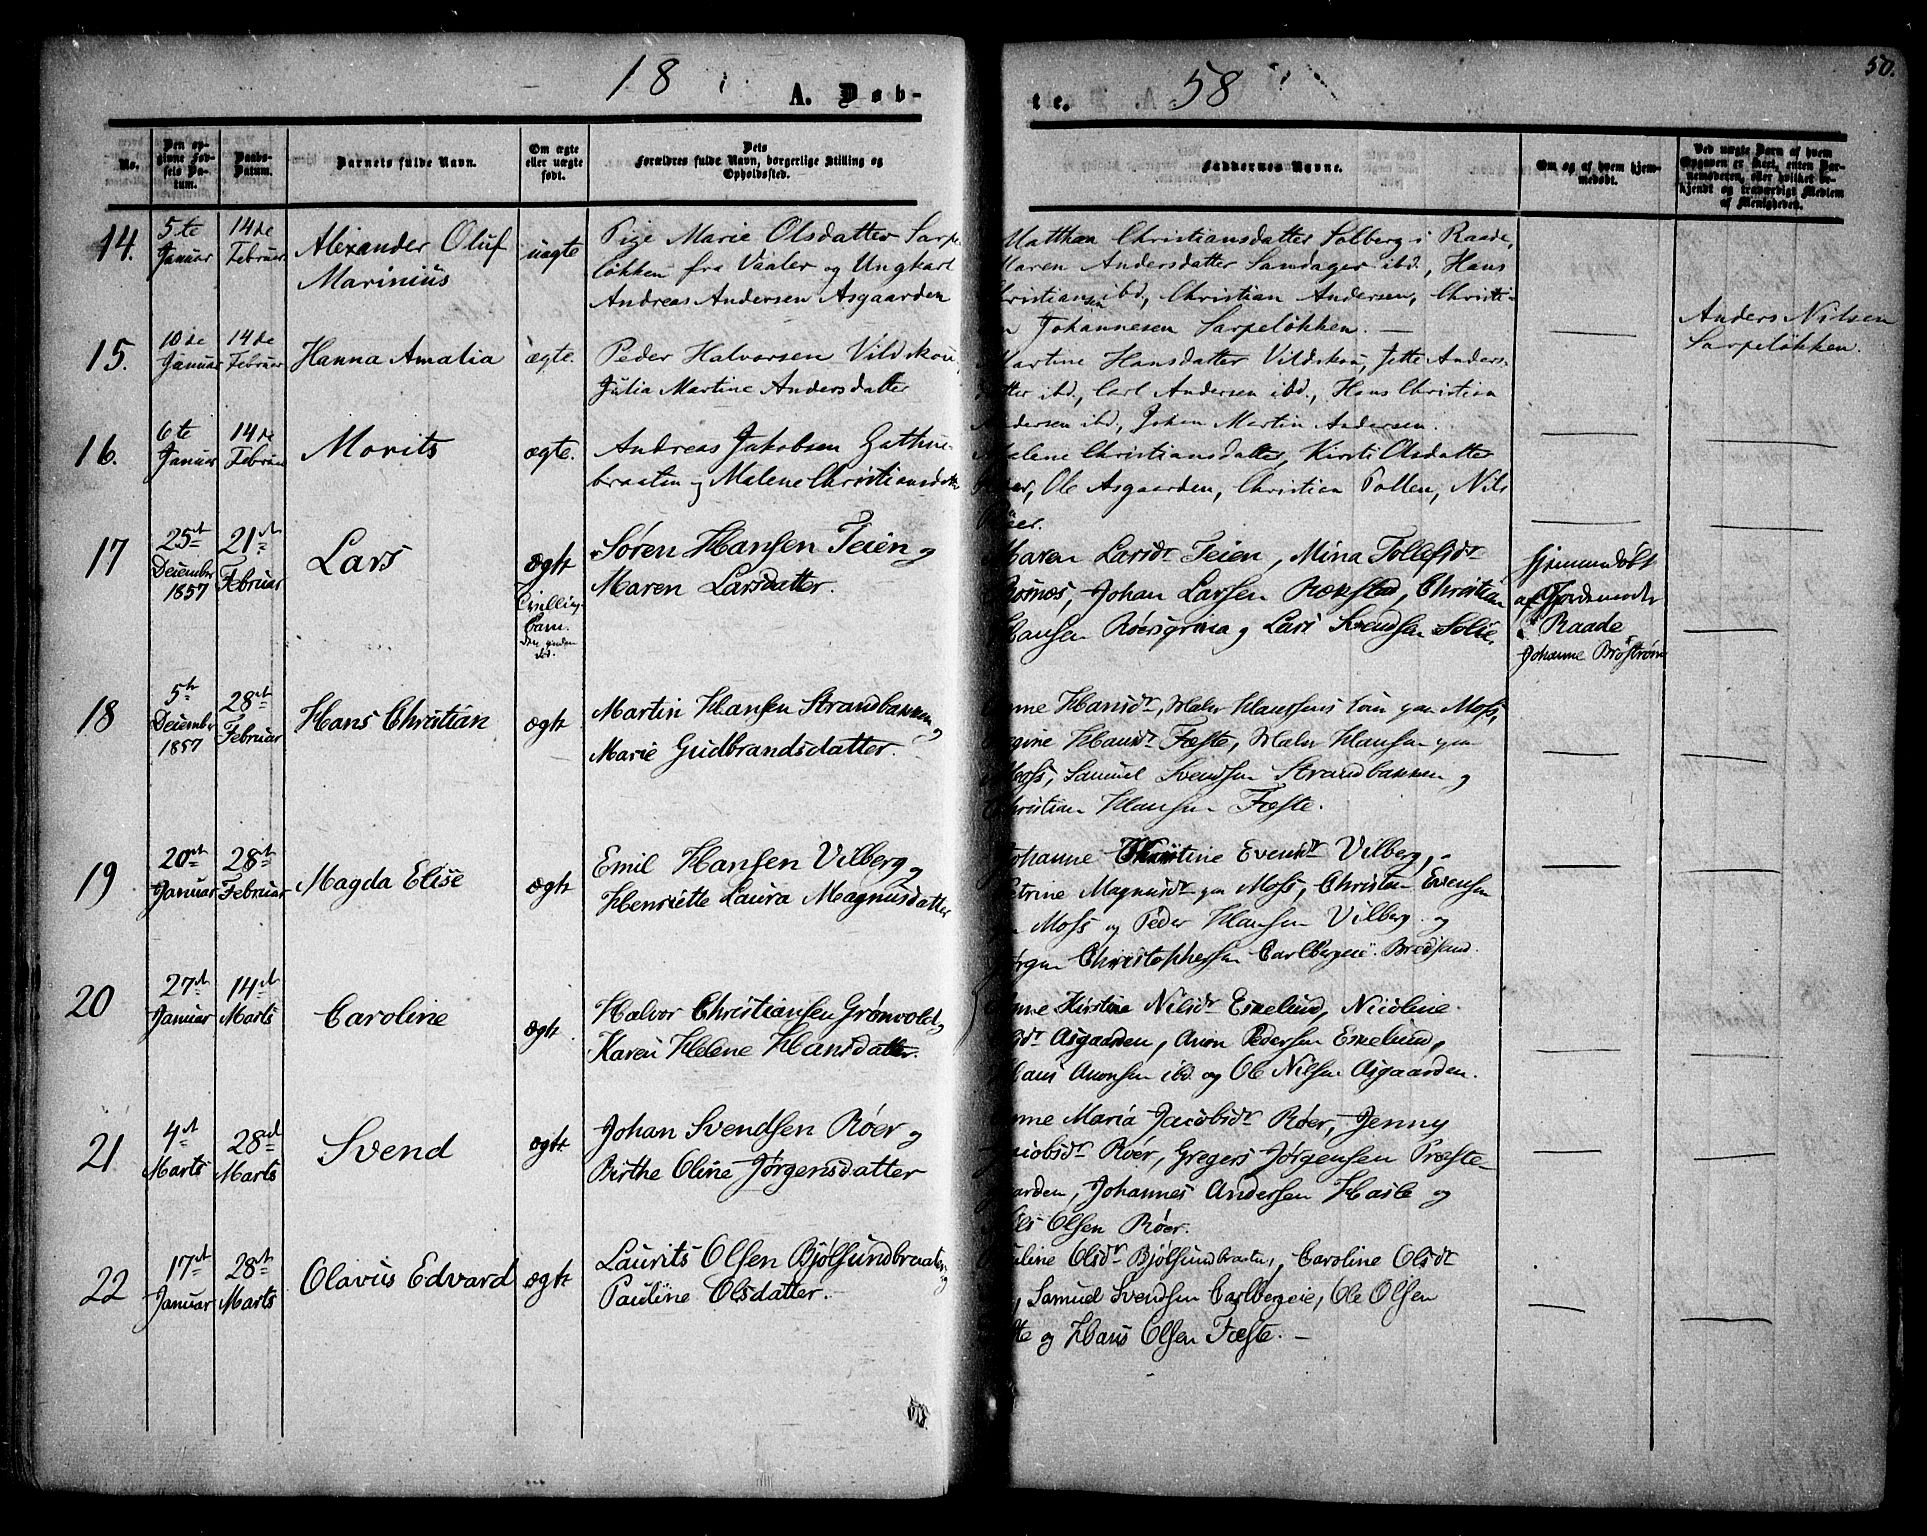 18 58 50.
A. Døb- te.
No.
Den op-
givne Fød-
sels Da-
tum.
Daabs-
Datum.
Barnets fulde Navn.
Om ægte
eller uægte
født.
Dets
Forældres fulde Navn, borgerlige Stilling og
Opholdssted.
Faddernes Navne.
Om og af hvem hjem-
medøbt.
Ved uægte Barn af hvem
Opgaven er skeet, enten Bar-
nemoderen, eller hvilket be-
kjendt og troværdigt Medlem
af Menigheden.
14.
5te
Januar
14de
Februar
Alexander Oluf
Marinius
uægte
Pige Marie Olsdatter Sarpe-
løkken fra Vaaler og Ungkarl
Andreas Andersen Asgaarden
Matthan Christiansdatter Solberg i Raade,
Maren Andersdatter Sandager ibd., Hans
Christiansen ibd, Christian Andersen, Christi-
Johannesen Sarpeløkken. —
Anders Nilsen
Sarpeløkken.
15.
10de
Januar
14de
Februar
Hanna Amalia
ægte.
Peder Halvorsen Vildskou,
Julia Martine Andersdatter
Martine Hansdatter Vildskou, Jette Anders-
datter ibd, Carl Andersen ibd., Hans Christian
Andersen ibd, Johan Martin Andersen.
16.
6te
Januar
14de
Februar
Morits
ægte.
Andreas Jakobsen
braaten og Malene Christiansdatter
Malene Christiansdatter, Kirsti Olsdatter
Røer, Ole Asgaarden, Christian Pollen, Nils
Røer.
17
25de
December
1857
21de
Februar
Lars
ægte
Tvilling
Barn.
den anden
død.
Søren Hansen Teien og
Maren Larsdatter.
Maren Larsdr Teien, Mina Tollefsdr
Johan Larsen Rækstad, Christian
Hansen Røersgrina og Lars Svendsen Solie.
hjemmedøbt
af Gjordemoder
i Raade
Johanne Brostrøm
18
5te
December
1857
28de
Februar
Hans Christian
ægte
Martin Hansen Strandbakken og
Marie Gudbrandsdatter.
Anne Hansdr, Maler Hanssens Kone paa Moss,
Regine Hansdr Fæste, Maler Hansen paa
Moss, Samuel Svendsen Strandbakken og
Christian Hansen Fæste.
19
20de
Januar
28de
Februar
Magda Elise
ægte
Emil Hansen Vilberg og
Henriette Laura Magnusdatter
Johanne Christine Evensdr Vilberg,
Petrine Magnusdr paa Moss, Christian Evensen
Moss og Peder Hansen Vilberg og
Jørgen Christophersen Carlbergeie. Bredsand.
20
27de
Januar
14de
Marts
Caroline
ægte.
Halvor Christiansen Grønvold og
Karen Helene Hansdatter.
Anne Kirstine Nilsdr Eskelund, Nicoline
Asgaarden, Amon Pedersen Eskelund,
Hans Amonsen ibd. og Ole Nilsen Asgaarden.
21
4de
Marts
28de
Marts
Svend
ægte
Johan Svendsen Røer og
Birthe Oline Jørgensdatter
Anne Maria Jacobsdr Røer, Jenny
Jacobsdr Røer, Gregers Jørgensen Præste-
gaarden, Johannes Andersen Hasle og
Nils Olsen Røer.
22
17de
Januar
28de
Marts
Olavus Edvard
ægte
Laurits Olsen Bjølsundbraaten og
Pauline Olsdatter.
Pauline Olsdr Bjølsundbraaten, Caroline Olsdr
Samuel Svendsen Carlbergeie, Ole Olsen
Fæste og Hans Olsen Fæste. —